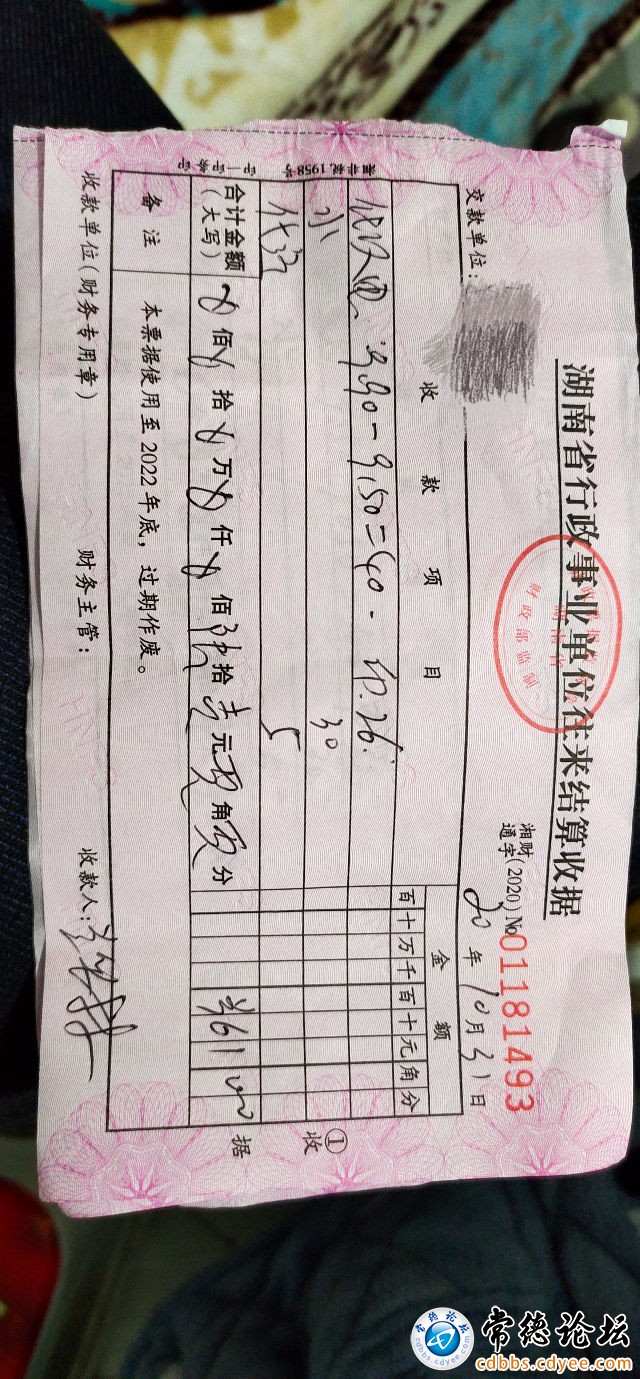 湖南省行政事业单位往来结算收据
湖南省
财政部监制
湘财通字(2020) №01181493
交款单位:
20年10月31日
收款项目 金额
百十万千百十元角分
代收电: 990-950=40- 26.
水 30
5
合计金额(大写) 佰 拾 万 仟 佰 陆拾壹元零角零分 ¥6100
备注 本票据使用至2022年底,过期作废。
收款单位(财务专用章) 财务主管: 收款人:
①收据
湘非税1958号
印一印务印
常德论坛
cdbbs.cdyee.com